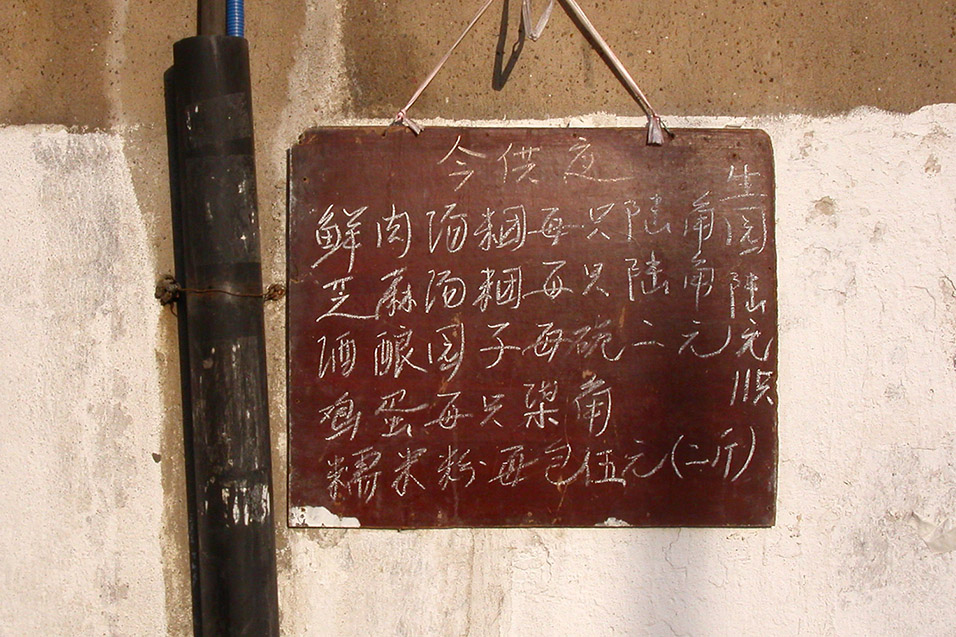 今供应
鲜肉汤糰每只陆角
芝麻汤糰每只陆角
酒酿园子每碗二元
鸡蛋每只柒角
糯米粉每包伍元(二斤)
生园陆元11只